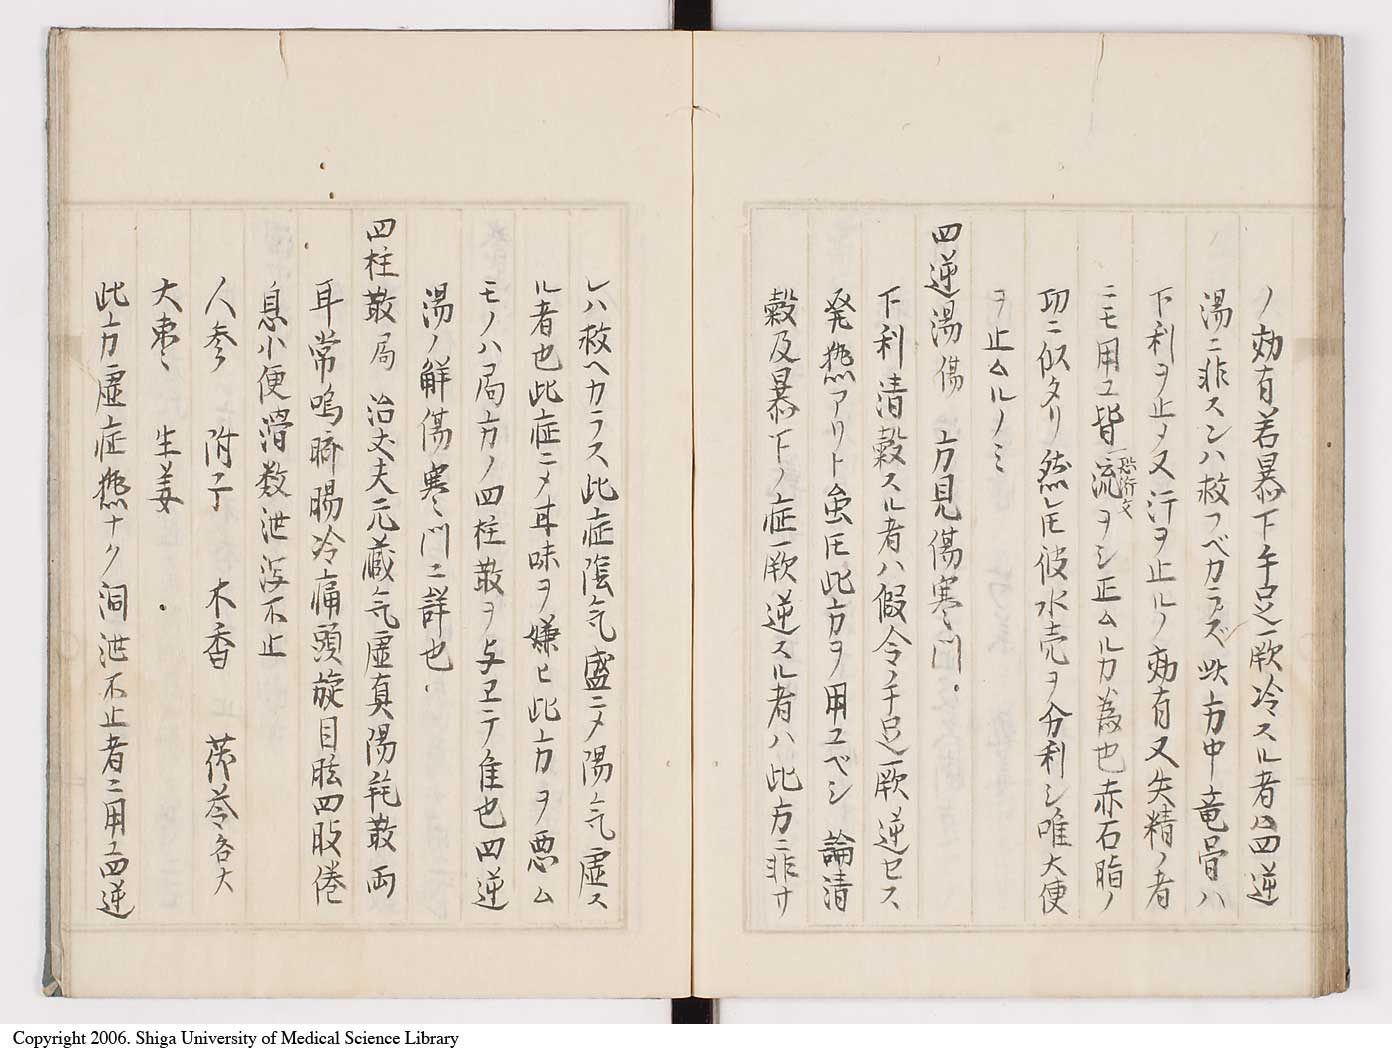 ノ効有若暴下手足厥冷スル者ハ四逆
湯ニ非スンハ救フベカラズ此方中竜骨ハ
下利ヲ止メ又汗ヲ止ルノ効有又失精ノ者
ニモ用ユ皆流ヲシ正ムルカ為也赤石脂ノ
恐衍文
功ニ似タリ然ㇾ𪜈彼水売ヲ分利シ唯大便
ヲ止ムルノミ
四逆湯 傷 方見傷寒門.
下利清穀スル者ハ假令手足厥逆セス
発熱アリト虽𪜈此方ヲ用ユベシ論清
穀及暴下ノ症厥逆スル者ハ此方ニ非サ
レハ救ヘカラス此症陰気盛ニメ陽気虚ス
ル者也此症ニメ甘味ヲ嫌ヒ此方ヲ悪ム
モノハ局方ノ四柱散ヲ与ヱテ佳也四逆
湯ノ解傷寒門ニ詳也.
四柱散 局 治丈夫元蔵気虚真陽耗散両
耳常鳴臍腸冷痛頭旋目眩四肢倦
怠小便滑数泄瀉不止
人参 附子 木香 茯苓各大
大棗 生姜
此方虚症熱ナク洞泄不止者ニ用ユ四逆